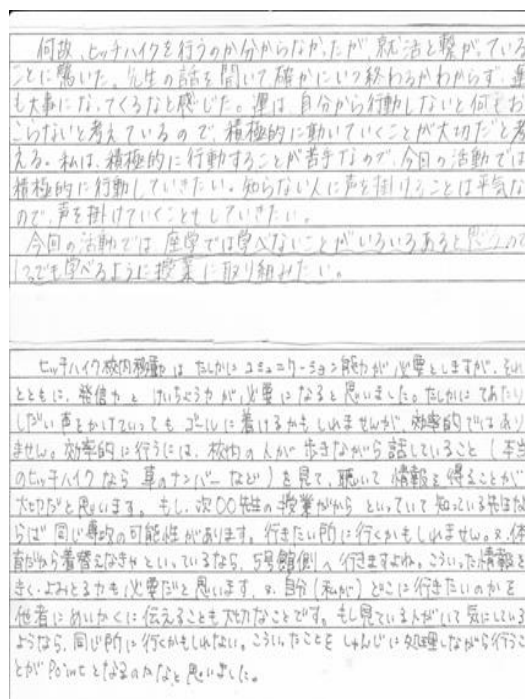 何故、ヒッチハイクを行うのか分からなかったが、就活と繋がっている
ことに驚いた。先生の話を聞いて確かにいつ終わるかわからず、運
も大事になってくるなと感じた。運は、自分から行動しないと何もお
こらないと考えているので、積極的に動いていくことが大切だと考
える。私は、積極的に行動することが苦手なので、今回の活動では
積極的に行動していきたい。知らない人に声を掛けることは平気な
ので、声を掛けていくこともしていきたい。
今回の活動では、座学では学べないことがいろいろあると思うので
1つでも学べるように授業に取り組みたい。
ヒッチハイク校内移動はたしかにコミュニケーション能力が必要としますが、それ
とともに、発信力とけいちょう力が必要になると思いました。たしかにてあたり
しだい声をかけていってもゴールに着けるかもしれませんが、効率的ではあり
ません。効率的に行うには、校内の人が歩きながら話していること(本当
のヒッチハイクなら車のナンバーなど)を見て、聴いて情報を得ることが
大切だと思います。もし、次〇〇先生の授業だからといっていて知っている先生な
らば同じ専攻の可能性があります。行きたい所に行くかもしれません。又、体
育だから着替えなきゃといっているなら、5号館側へ行きますよね。こういった情報を
きく・よみとる力も必要だと思います。又、自分(私が)どこに行きたいのかを
他者にめいかくに伝えることも大切なことです。もし見ている人がいて気にしている
ようなら、同じ所に行くかもしれない。こういったことをしゅんじに処理しながら行うこ
とがPointとなるのかなと思いました。